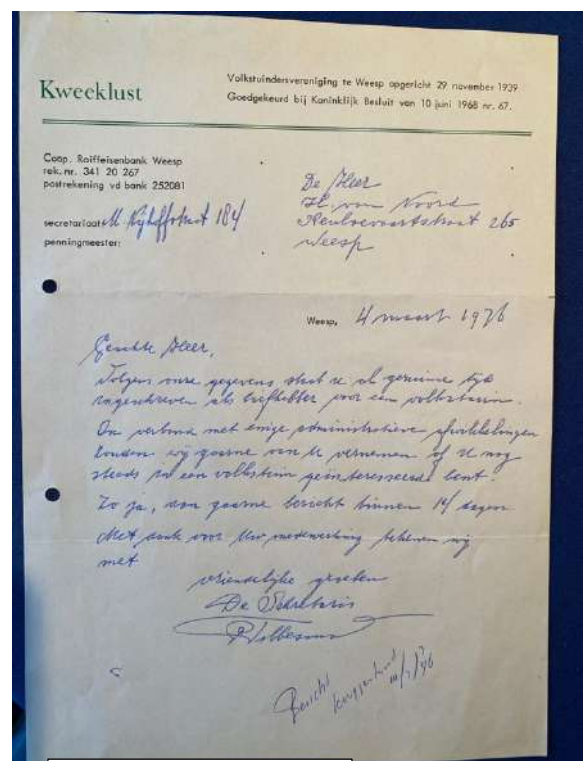 Kweeklust
Volkstuindersvereniging te Weesp opgericht 29 november 1939
Goedgekeurd bij Koninklijk Besluit van 10 juni 1968 nr. 67.
Coöp. Raiffeisenbank Weesp
rek. nr. 341 20 267
postrekening vd bank 252081
secretariaat: M. Nijhoffstraat 184
penningmeester:
De Heer
H. van Noord
265
Weesp
Weesp, 4 maart 1976
Geachte Heer,
Volgens onze gegevens staat u al geruime tijd
ingeschreven als liefhebber voor een volkstuin.
In verband met enige administratieve afwikkelingen
zouden wij gaarne van U vernemen of U nog
steeds in een volkstuin geïnteresseerd bent.
Zo ja, dan gaarne bericht binnen 14 dagen
Met dank voor Uw medewerking tekenen wij
met
vriendelijke groeten
De Sekretaris
Bericht